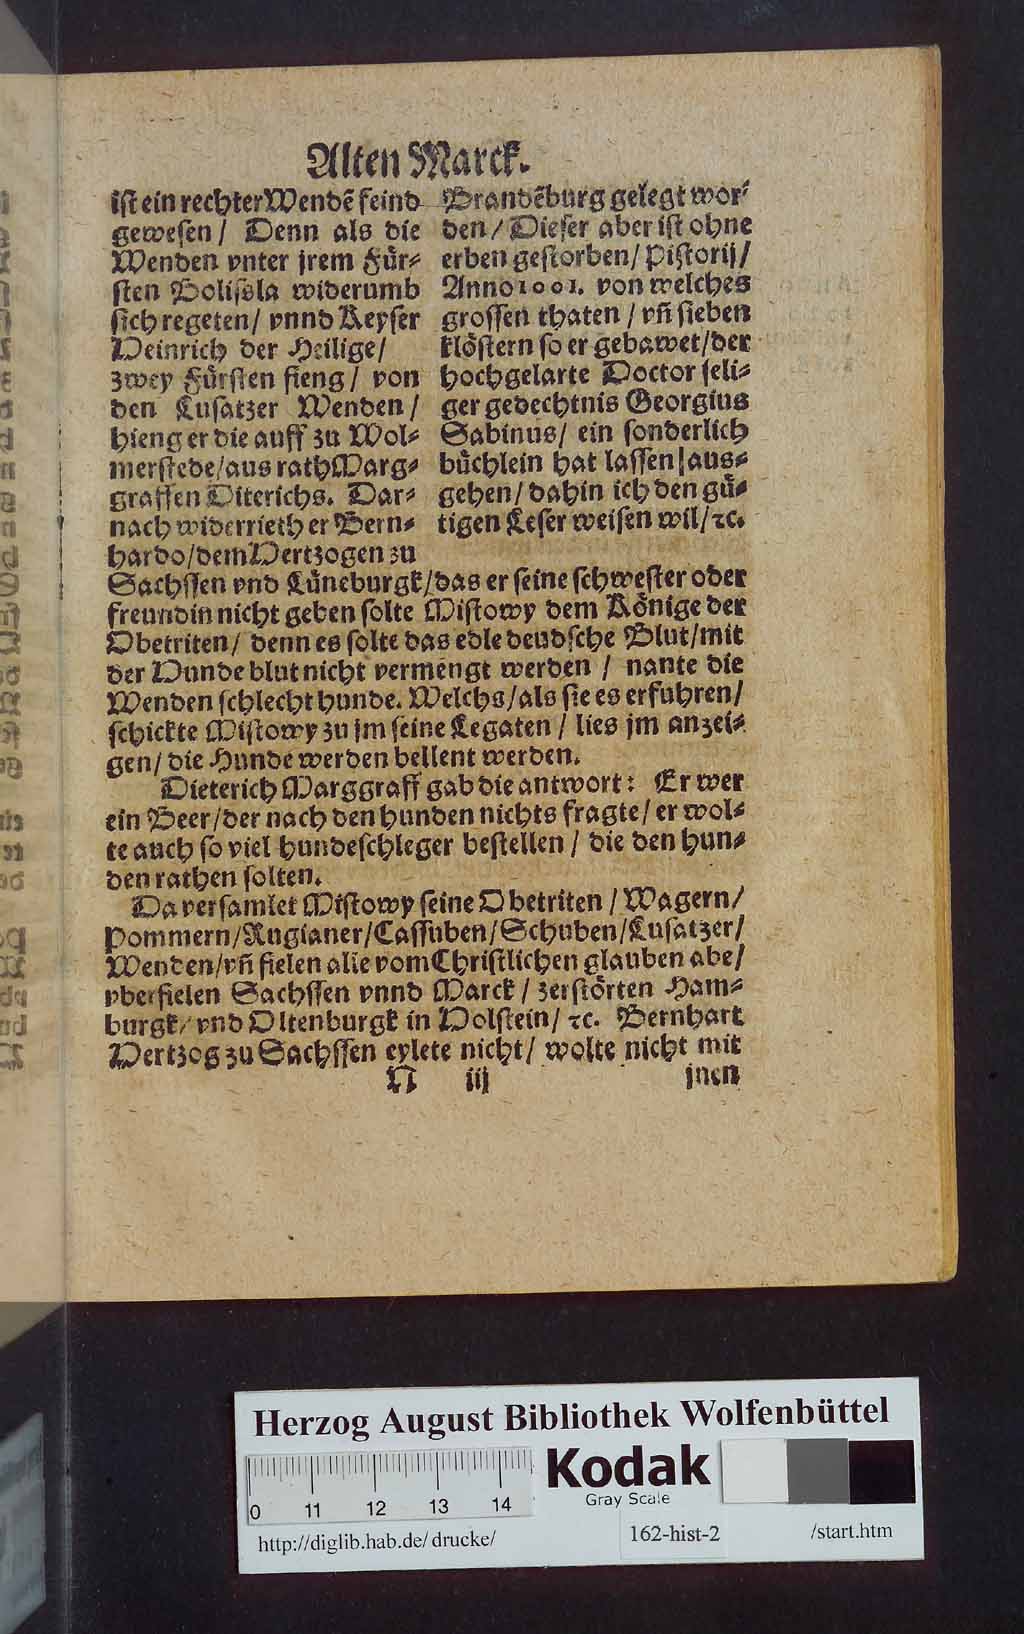 Alten Marck.
ist ein rechter Wendẽ feind
gewesen/ Denn als die
Wenden vnter jrem Für-
sten Bolisøla widerumb
sich regeten/ vnnd Keyser
Heinrich der Heilige/
zwey Fürsten fieng/ von
den Lusatzer Wenden/
hieng er die auff zu Wol-
merstede/aus rath Marg-
graffen Diterichs. Dar-
nach widerrieth er Bern-
hardo/dem Hertzogen zu
Brandẽburg gelegt wor-
den/ Dieser aber ist ohne
erben gestorben/ Pistorij/
Anno 1001. von welches
grossen thaten/ vñ sieben
klöstern so er gebawet/der
hochgelarte Doctor seli-
ger gedechtnis Georgius
Sabinus/ ein sonderlich
büchlein hat lassen aus-
gehen/ dahin ich den gü-
tigen Leser weisen wil/ ꝛc.
Sachssen vnd Lüneburgk/das er seine schwester oder
freundin nicht geben solte Mistowy dem Könige der
Obetriten/ denn es solte das edle deudsche Blut/mit
der Hunde blut nicht vermengt werden/ nante die
Wenden schlecht hunde. Welchs/als sie es erfuhren/
schickte Mistowy zu jm seine Legaten/ lies jm anzei-
gen/ die Hunde werden bellent werden.
Dieterich Marggraff gab die antwort: Er wer
ein Beer/der nach den hunden nichts fragte/ er wol-
te auch so viel hundeschleger bestellen/ die den hun-
den rathen solten.
Da versamlet Mistowy seine Obetriten/ Wagern/
Pommern/Rugianer/Cassuben/Schuben/Lusatzer/
Wenden/vñ fielen alle vom Christlichen glauben abe/
vberfielen Sachssen vnnd Marck/ zerstörten Ham-
burgk/ vnd Oltenburgk in Holstein/ ꝛc. Bernhart
Hertzog zu Sachssen eylete nicht/ wolte nicht mit
N iij jnen
Herzog August Bibliothek Wolfenbüttel
0 11 12 13 14
Kodak
Gray Scale
http://diglib.hab.de/drucke/ 162-hist-2 /start.htm